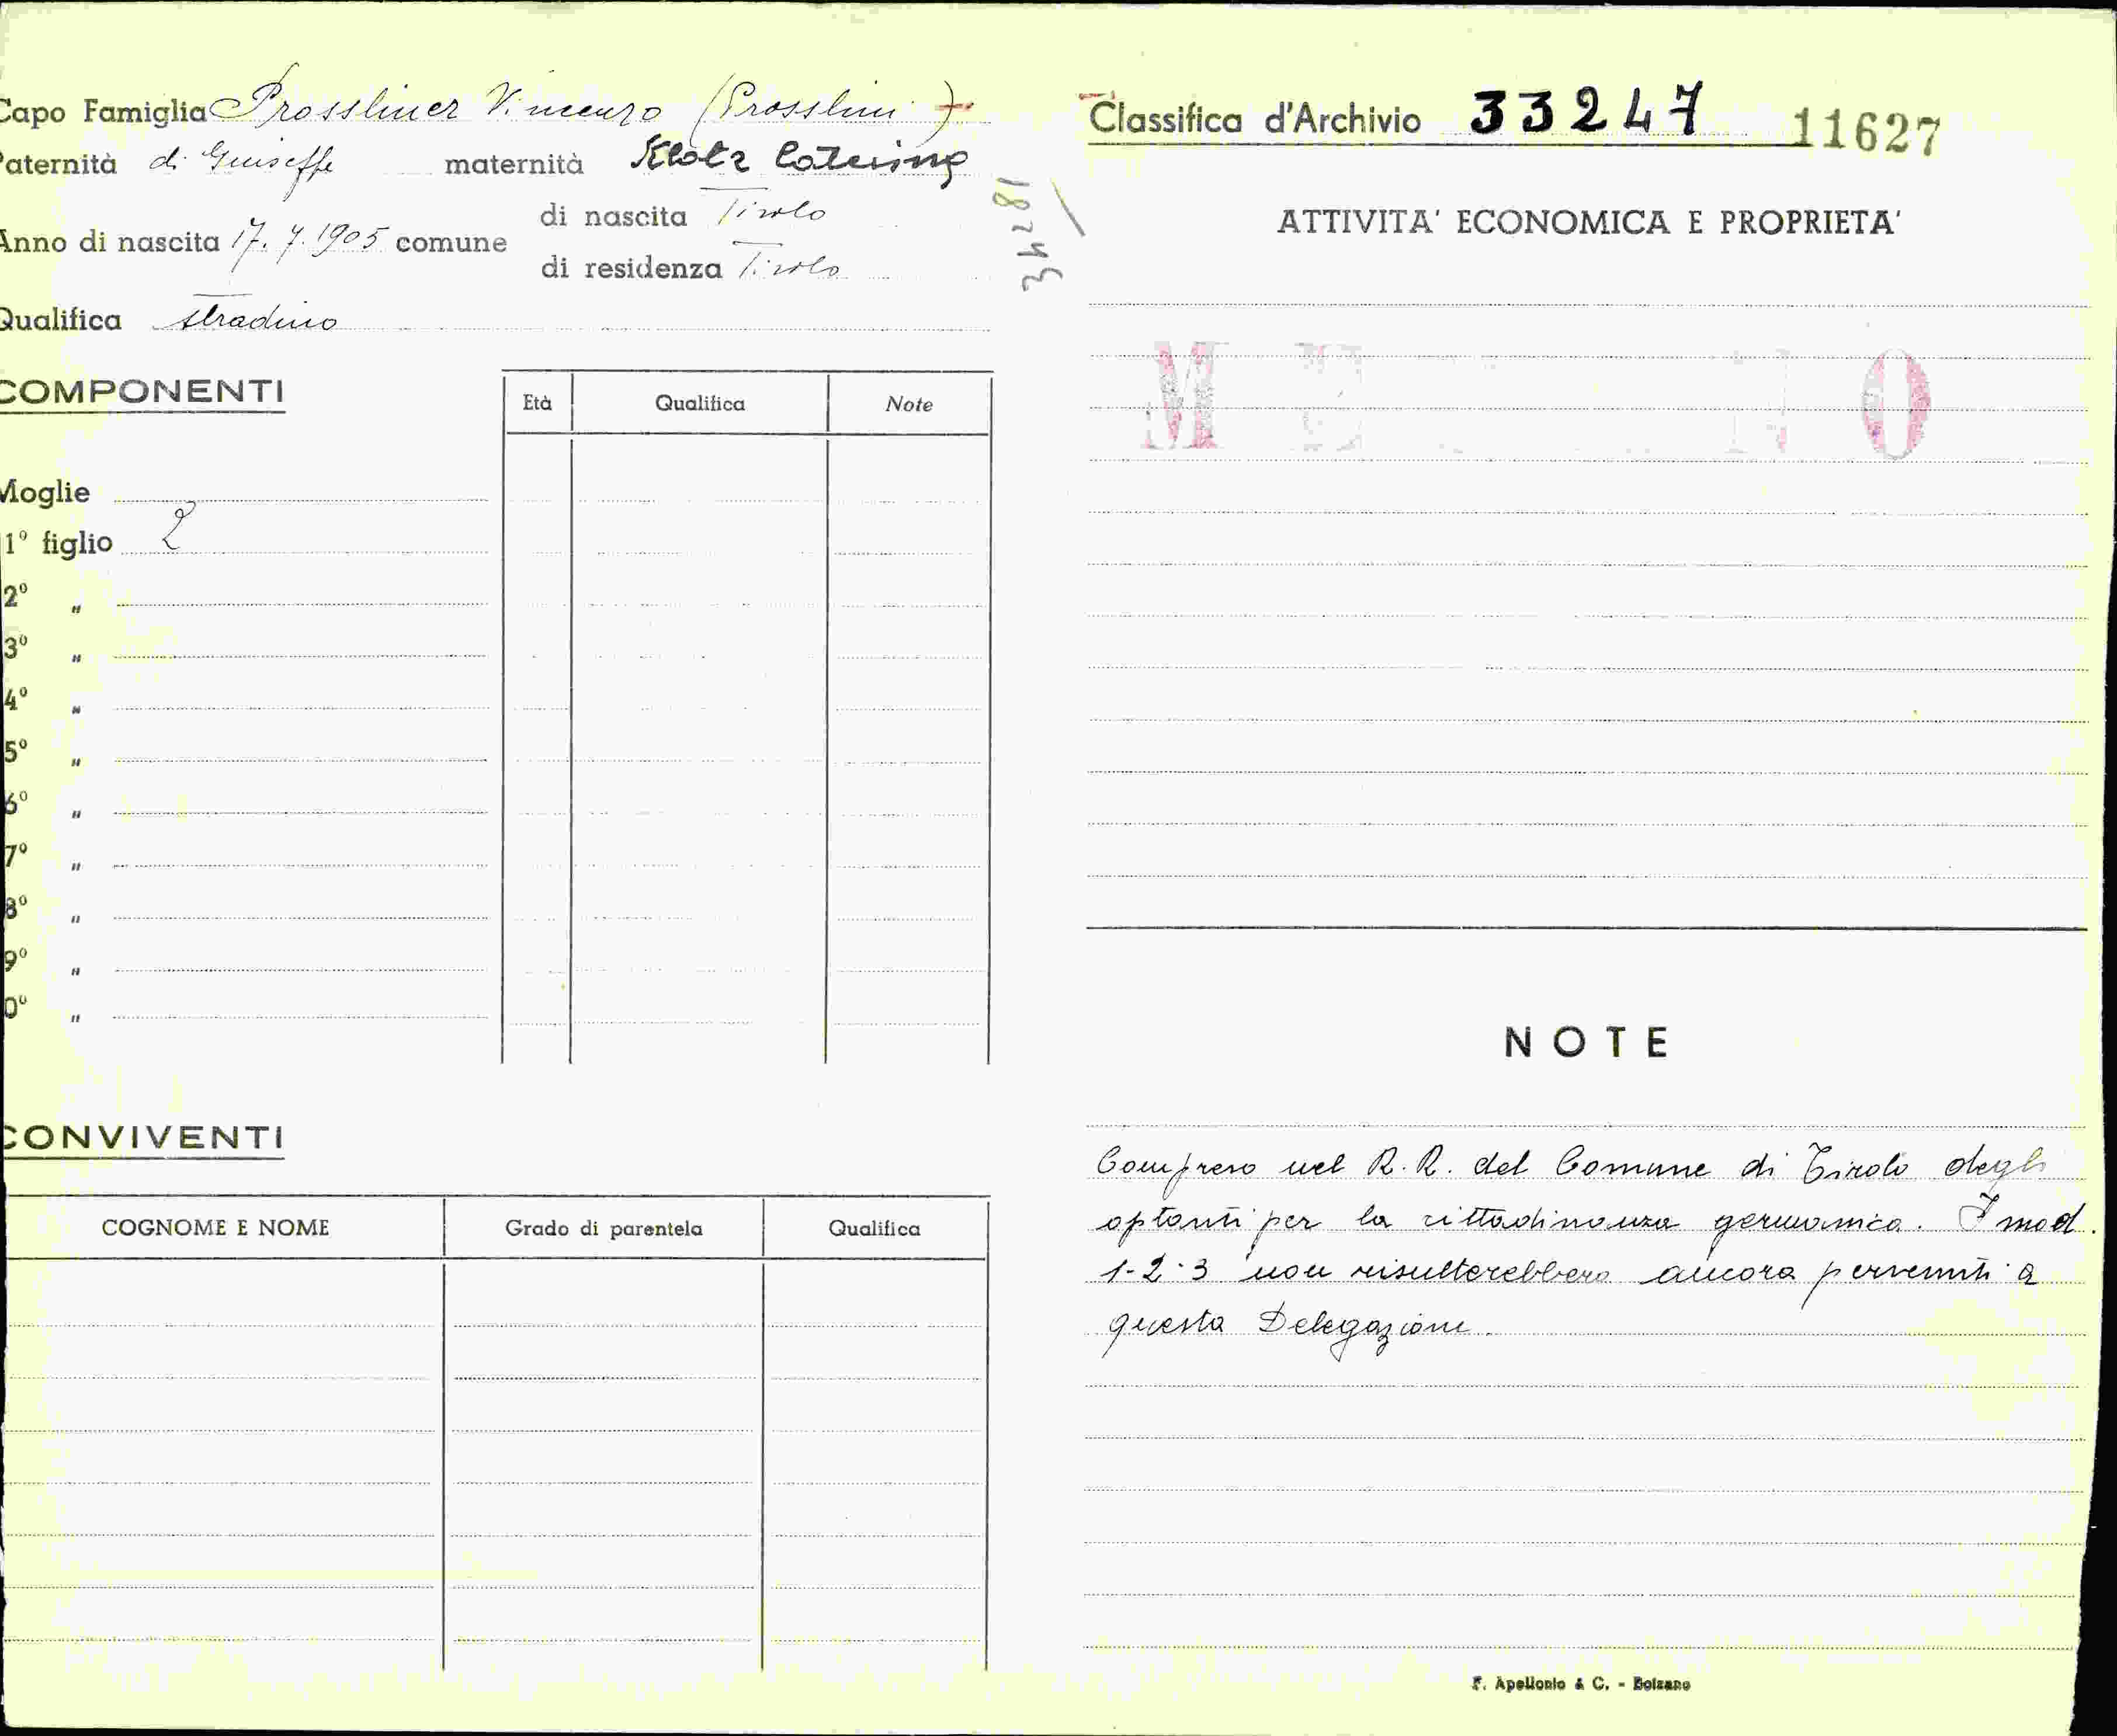 Capo Famiglia Prossliner Vincenzo (Prosslini)
Paternità di Giuseffe maternità Klotz Caterina
Anno di nascita 17.7.1905 comune
di nascita Tirolo
di residenza Tirolo
Qualifica stradino
COMPONENTI
Età Qualifica Note
Moglie
1º figlio 2
2º "
3º "
4º "
5º "
6º "
7º "
8º "
9º "
0º "
CONVIVENTI
COGNOME E NOME Grado di parentela Qualifica
Classifica d'Archivio 33247 11627
ATTIVITA' ECONOMICA E PROPRIETA'
NOTE
Compreso nel R.R. del Comune di Tirolo degli
optanti per la cittadinanza germanica. I mod.
1-2-3 non risulterebbero ancora pervenuti a
questa Delegazione.
F. Apollonio & C. - Bolzano